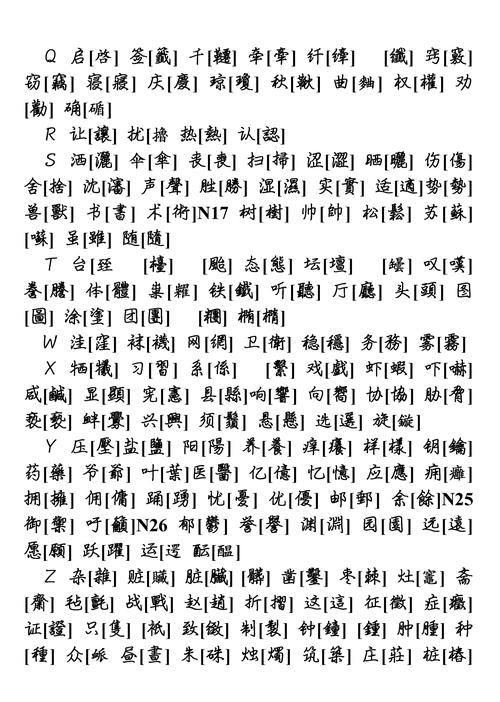 Q 启[啓] 签[籤] 千[韆] 牵[牽] 纤[縴] [纖] 窍[竅]
窃[竊] 寝[寢] 庆[慶] 琼[瓊] 秋[鞦] 曲[麯] 权[權] 劝
[勸] 确[碻]
R 让[讓] 扰[擾] 热[熱] 认[認]
S 洒[灑] 伞[傘] 丧[喪] 扫[掃] 涩[澀] 晒[曬] 伤[傷]
舍[捨] 沈[瀋] 声[聲] 胜[勝] 湿[濕] 实[實] 适[適]势[勢]
兽[獸] 书[書] 术[術]N17 树[樹] 帅[帥] 松[鬆] 苏[蘇]
[囌] 虽[雖] 随[隨]
T 台[臺] [檯] [颱] 态[態] 坛[壇] [罎] 叹[嘆]
誊[謄] 体[體] 粜[糶] 铁[鐵] 听[聽] 厅[廳] 头[頭] 图
[圖] 涂[塗] 团[團] [糰] 椭[橢]
W 洼[窪] 袜[襪] 网[網] 卫[衛] 稳[穩] 务[務] 雾[霧]
X 牺[犧] 习[習] 系[係] [繫] 戏[戲] 虾[蝦] 吓[嚇]
咸[鹹] 显[顯] 宪[憲] 县[縣]响[響] 向[嚮] 协[協] 胁[脅]
亵[褻] 衅[釁] 兴[興] 须[鬚] 悬[懸] 选[選] 旋[鏇]
Y 压[壓]盐[鹽] 阳[陽] 养[養] 痒[癢] 样[樣] 钥[鑰]
药[藥] 爷[爺] 叶[葉]医[醫] 亿[億] 忆[憶] 应[應] 痈[癰]
拥[擁] 佣[傭] 踊[踴] 忧[憂] 优[優] 邮[郵] 余[餘]N25
御[禦] 吁[籲]N26 郁[鬱] 誉[譽] 渊[淵] 园[園] 远[遠]
愿[願] 跃[躍] 运[運] 酝[醞]
Z 杂[雜] 赃[贓] 脏[臟] [髒] 凿[鑿] 枣[棗] 灶[竈] 斋
[齋] 毡[氈] 战[戰] 赵[趙] 折[摺] 这[這] 征[徵] 症[癥]
证[證] 只[隻] [衹] 致[緻] 制[製] 钟[鐘] [鍾] 肿[腫] 种
[種] 众[眾] 昼[晝] 朱[硃] 烛[燭] 筑[築] 庄[莊] 桩[樁]